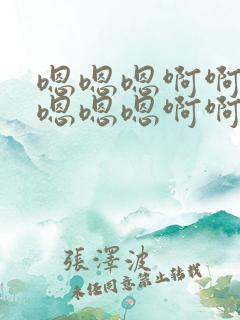 嗯嗯嗯啊啊
嗯嗯嗯啊啊
張澤波
未经同意禁止转载